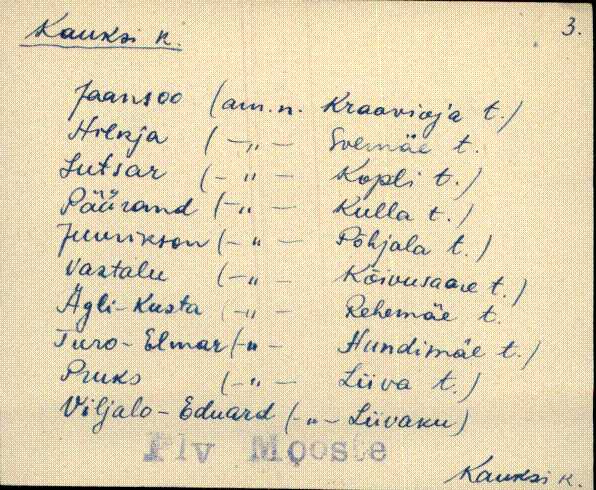 Kauksi k. 3.
Jaansoo (am.n. Kraavioja t.)
Hilkja ( -"- Soemäe t.
Lutsar (-"- Kopli t.)
Päärand (-"- Kulla t.)
Juurikson (-"- Põhjala t.)
Vastalu (-"- Kõivusaare t.)
Ägli-Kusta (-"- Rehemäe t.
Turo-Elmar (-"- Hundimäe t.)
Pruks (-"- Liiva t.)
Viljalo-Eduard (-"- Liivaku)
Plv Mooste
Kauksi k.